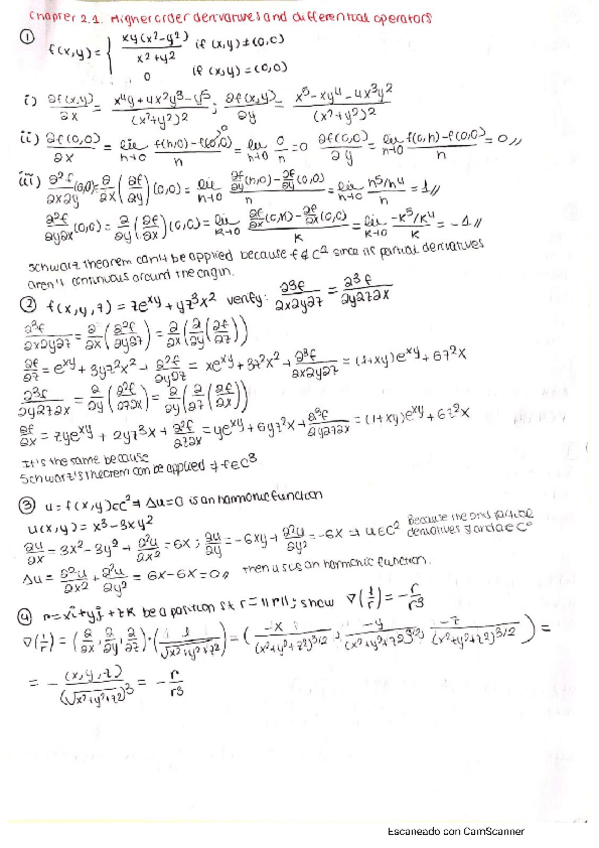 Chapter 2.1. Higher order derivatives and differential operators
① f(x,y) = { xy(x²-y²) / x²+y² if (x,y)≠(0,0)
0 if (x,y)=(0,0)
i) ∂f(x,y)/∂x = x⁴y+4x²y³-y⁵ / (x²+y²)² ; ∂f(x,y)/∂y = x⁵-xy⁴-4x³y² / (x²+y²)²
ii) ∂f(0,0)/∂x = lim h→0 f(h,0)-f(0,0)/h = lim h→0 0/h = 0 ∂f(0,0)/∂y = lim h→0 f(0,h)-f(0,0)/h = 0//
iii) ∂²f/∂x∂y (0,0) = ∂/∂x (∂f/∂y)(0,0) = lim h→0 ∂f/∂y(h,0)-∂f/∂y(0,0) / h = lim h→0 h⁵/h⁴ / h = 1//
∂²f/∂y∂x (0,0) = ∂/∂y (∂f/∂x)(0,0) = lim k→0 ∂f/∂x(0,k)-∂f/∂x(0,0) / k = lim k→0 -k⁵/k⁴ / k = -1//
Schwarz theorem can't be applied because f ∉ C² since its partial derivatives
aren't continuous around the origin.
② f(x,y,z) = ze^xy + yz³x² verify: ∂³f/∂x∂y∂z = ∂³f/∂y∂z∂x
∂³f/∂x∂y∂z = ∂/∂x (∂²f/∂y∂z) = ∂/∂x (∂/∂y (∂f/∂z))
∂f/∂z = e^xy + 3yz²x² → ∂²f/∂y∂z = xe^xy + 3z²x² → ∂³f/∂x∂y∂z = (1+xy)e^xy + 6z²x
∂³f/∂y∂z∂x = ∂/∂y (∂²f/∂z∂x) = ∂/∂y (∂/∂z (∂f/∂x))
∂f/∂x = zye^xy + 2yz³x → ∂²f/∂z∂x = ye^xy + 6yz²x → ∂³f/∂y∂z∂x = (1+xy)e^xy + 6z²x
It's the same because
Schwarz's theorem can be applied → f∈C³
③ u = f(x,y) ∈ C² ⇒ Δu=0 is an harmonic function
u(x,y) = x³-3xy²
∂u/∂x = 3x²-3y² → ∂²u/∂x² = 6x ; ∂u/∂y = -6xy → ∂²u/∂y² = -6x ⇒ u∈C² Because the partial
derivatives ∈ C⁰
Δu = ∂²u/∂x² + ∂²u/∂y² = 6x-6x = 0// then u is an harmonic function.
④ r = xi+yj+zk be a position st r=||r||; show ∇(1/r) = -r/r³
∇(1/r) = (∂/∂x, ∂/∂y, ∂/∂z) · (1/√x²+y²+z²) = (-x/(x²+y²+z²)^3/2, -y/(x²+y²+z²)^3/2, -z/(x²+y²+z²)^3/2) =
= - (x,y,z)/(√x²+y²+z²)³ = - r/r³
Escaneado con CamScanner